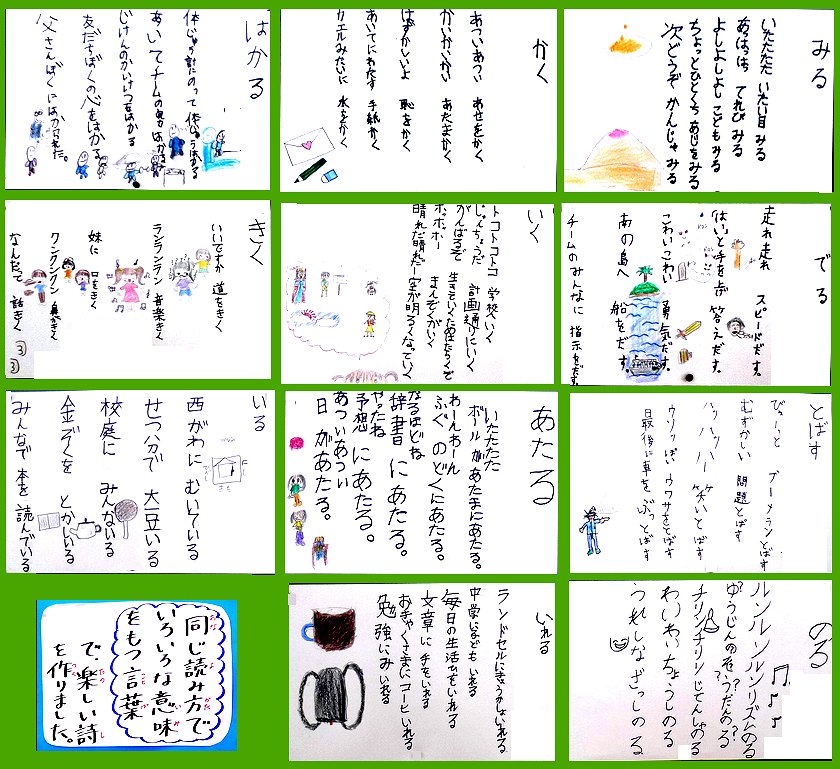 はかる
体じゅう計にのって体じゅうはかる
あいてチームの色をはかる
じけんのかいけつをはかる
友だちぼくの心をはかる
父さんぼくにはかられた。
かく
あついあつい あせをかく
かいかいかい あたまかく
はずかしいよ 恥をかく
あいてにわたす 手紙かく
カエルみたいに 水をかく
みる
いたたたた いたい目みる
あっはっは てれびみる
よしよしよし こどもみる
ちょっとひとくち あじをみる
次どうぞ かんじゃみる
きく
いいですか 道をきく
ランランラン 音楽きく
妹に 口をきく
クンクンクン 鼻がきく
なんだって 話きく
いく
トコトコトコ 学校いく
じゅんちょうだ 計画通りにいく
がんばるぞ
ポッポッポー まんぞくがいく
晴れた晴れた 空が明るくなっていく
でる
走れ走れ スピードだす。
はいと手を歩 答えだす。
こわいこわい 勇気だす。
南の島へ 船をだす。
チームのみんなに 指示をだす
いる
西がわに むいている
せつ分で 大豆いる
校庭に みんないる
金ぞくを とかいいる
みんなで 本を読んでいる
あたる
いたたたた
ボールがあたまにあたる。
わーんわーん
ふぐのどくにあたる。
なるほどね
辞書にあたる。
やったね
予想にあたる。
あついあつい
日があたる。
とばす
びゅーっと ブーメランとばす
むずかしい 問題とばす
ハッハッハー 笑いとばす
ウソっぱい ウワサをとばす
最後に車を ぶっとばす
同じ読み方で
いろいろな意味
をもつ言葉
で、楽しい詩
を作りました。
いれる
ランドセルにきょうかしょいれる
中学に子どもいれる
毎日の生活ひをいれる
文章に手をいれる
おきゃくさまにコーヒーいれる
勉強にみいれる
のる
ルンルンルンリズムのる
ゆうじんのそうだんのる
チリンチリンじてんしゃのる
わいわいちょうしのる
うれしなざっしのる